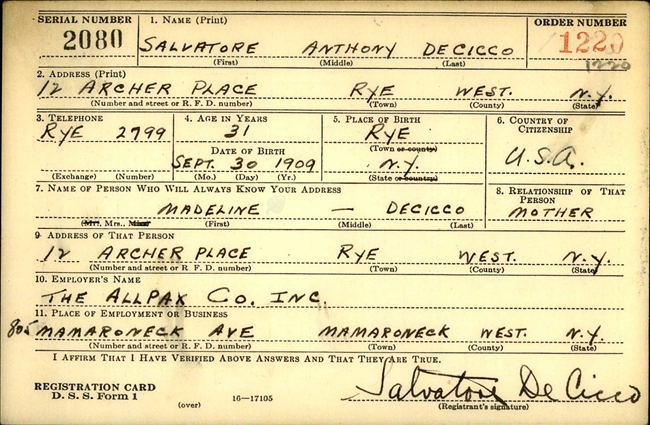 SERIAL NUMBER 1. NAME (Print) ORDER NUMBER
2080 SALVATORE ANTHONY DECICCO 1220
(First) (Middle) (Last) 1220
2. ADDRESS (Print)
12 ARCHER PLACE RYE WEST. N.Y.
(Number and street or R. F. D. number) (Town) (County) (State)
3. TELEPHONE 4. AGE IN YEARS 5. PLACE OF BIRTH 6. COUNTRY OF CITIZENSHIP
RYE 2799 31 RYE
DATE OF BIRTH (Town or county)
SEPT. 30 1909 N.Y. U.S.A.
(Exchange) (Number) (Mo.) (Day) (Yr.) (State or country)
7. NAME OF PERSON WHO WILL ALWAYS KNOW YOUR ADDRESS 8. RELATIONSHIP OF THAT PERSON
MADELINE — DECICCO MOTHER
(Mr., Mrs., Miss) (First) (Middle) (Last)
9 ADDRESS OF THAT PERSON
12 ARCHER PLACE RYE WEST. N.Y.
(Number and street or R. F. D. number) (Town) (County) (State)
10. EMPLOYER'S NAME
THE ALLPAX CO. INC.
11. PLACE OF EMPLOYMENT OR BUSINESS
805 MAMARONECK AVE MAMARONECK WEST. N.Y.
(Number and street or R. F. D. number) (Town) (County) (State)
I AFFIRM THAT I HAVE VERIFIED ABOVE ANSWERS AND THAT THEY ARE TRUE.
REGISTRATION CARD
D. S. S. Form 1 (over) 16—17105 Salvatore De Cicco
(Registrant's signature)